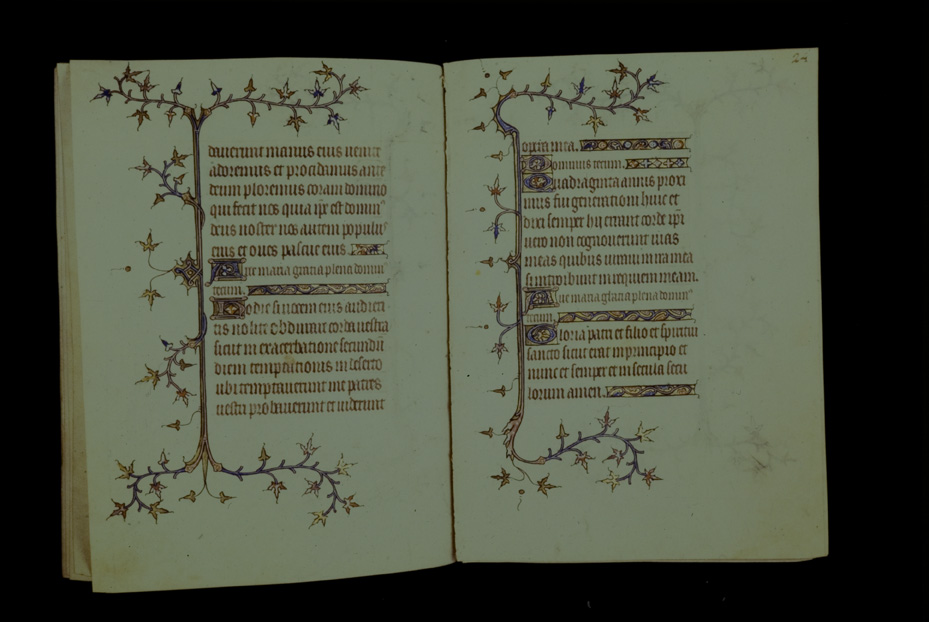 dauerunt manus eius uenite
adoremus et procidamus ante
deum ploremus coram domino
qui fecit nos quia ip̄e est domin⁹
deus noster nos autem populu᷒
eius et oues pascue eius.
Aue maria gratia plena domin⁹
tecum.
Hodie si uocem eius audieri
tis nolite obdurare corda uestra
sicut in exacerbatione secundū
diem temptationis in deserto
ubi temptauerunt me patres
uestri probauerunt et uiderunt
opera mea.
Dominus tecum.
Quadraginta annis proxi
mus fui generationi huic et
dixi semper hij errant corde ip̄i
uero non cognouerunt uias
meas quibus iuraui in ira mea
si introibunt in requiem meam.
Aue maria gratia plena domin⁹
tecum.
Gloria patri et filio et spiritui
sancto sicut erat in principio et
nunc et semper et in secula secu
lorum amen.